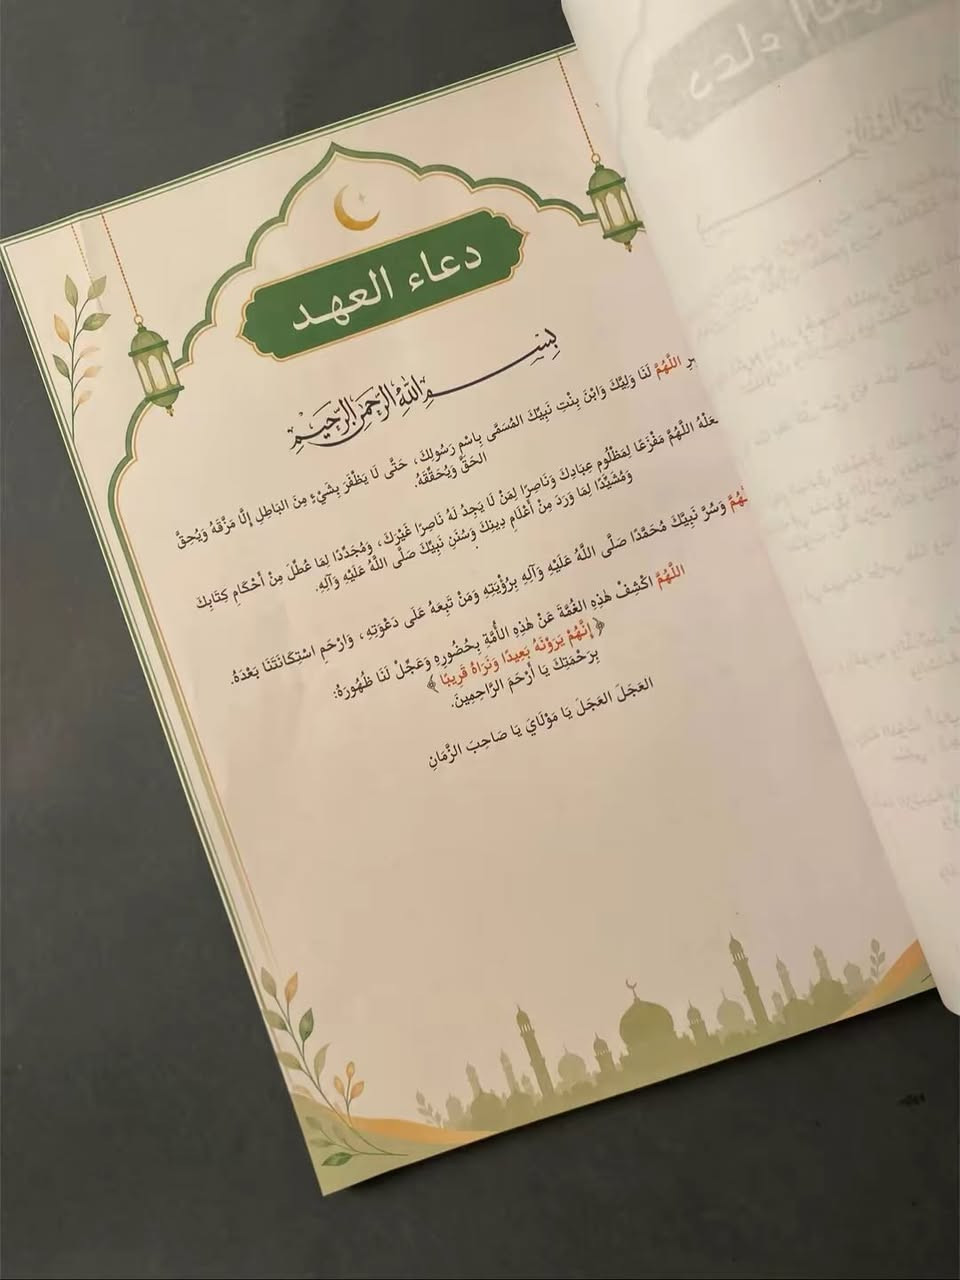 دعاء العهد
بِسْمِ اللهِ الرَّحْمنِ الرَّحِيمِ
اللَّهُمَّ لَنَا وَلِيَّكَ وَابْنَ بِنْتِ نَبِيِّكَ المُسَمَّى بِاسْمِ رَسُولِكَ، حَتَّى لَا يَظْفَرَ بِشَيْءٍ مِنَ البَاطِلِ إِلَّا مَزَّقَهُ وَيُحِقَّ
الحَقَّ وَيُحَقِّقَهُ.
اللَّهُمَّ مَفْزَعًا لِمَظْلُومِ عِبَادِكَ وَنَاصِرًا لِمَنْ لَا يَجِدُ لَهُ نَاصِرًا غَيْرَكَ، وَمُجَدِّدًا لِمَا عُطِّلَ مِنْ أَحْكَامِ كِتَابِكَ
وَمُشَيِّدًا لِمَا وَرَدَ مِنْ أَعْلَامِ دِينِكَ وَسُنَنِ نَبِيِّكَ صَلَّى اللَّهُ عَلَيْهِ وَآلِهِ.
وَسُرَّ نَبِيَّكَ مُحَمَّدًا صَلَّى اللَّهُ عَلَيْهِ وَآلِهِ بِرُؤْيَتِهِ وَمَنْ تَبِعَهُ عَلَى دَعْوَتِهِ، وَارْحَمِ اسْتِكَانَتَنَا بَعْدَهُ.
اللَّهُمَّ اكْشِفْ هَذِهِ الغُمَّةَ عَنْ هَذِهِ الأُمَّةِ بِحُضُورِهِ وَعَجِّلْ لَنَا ظُهُورَهُ:
﴿إِنَّهُمْ يَرَوْنَهُ بَعِيدًا وَنَرَاهُ قَرِيبًا﴾
بِرَحْمَتِكَ يَا أَرْحَمَ الرَّاحِمِينَ.
العَجَلَ العَجَلَ يَا مَوْلَايَ يَا صَاحِبَ الزَّمَانِ